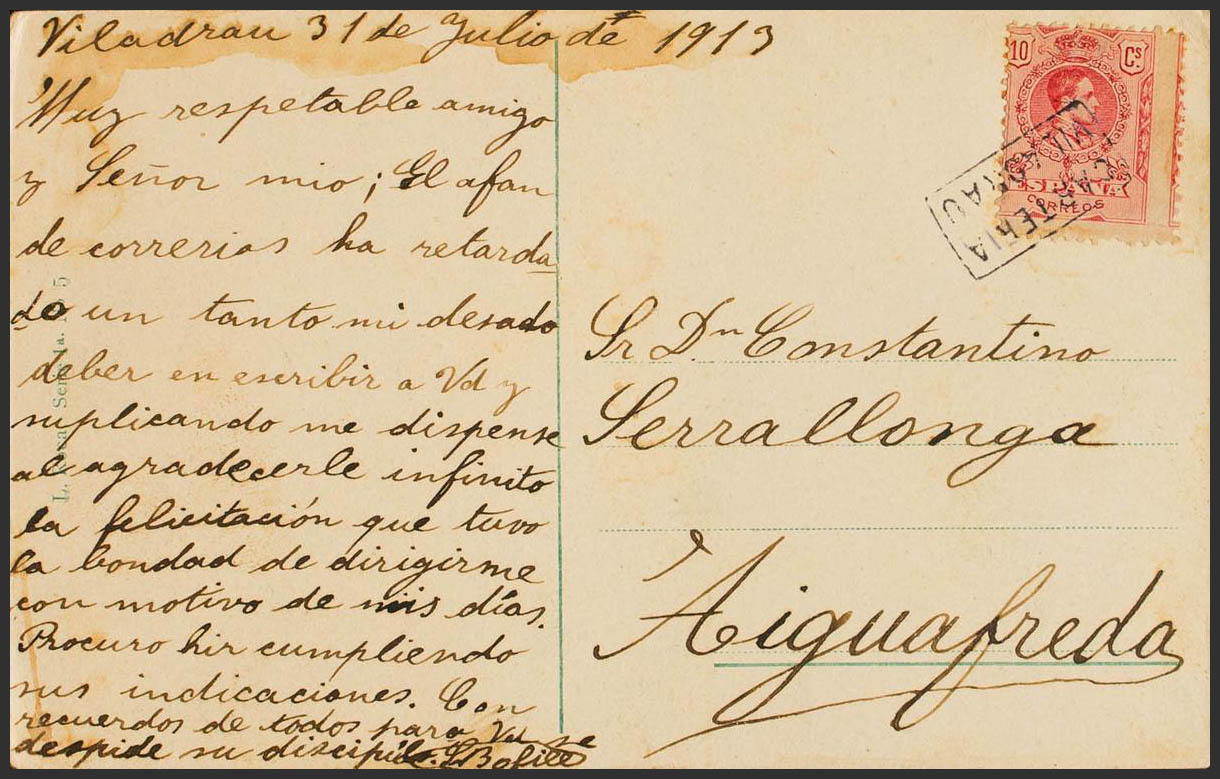 Viladrau 31 de Julio de 1913
Muy respetable amigo
y Señor mio; El afan
de correrias ha retarda
do un tanto mi desado
deber en escribir a Vd y
suplicando me dispense
al agradecerle infinito
la felicitación que tuvo
la bondad de dirigirme
con motivo de mis días.
Procuro hir cumpliendo
sus indicaciones. Con
recuerdos de todos para Vd se
despide su discipulo. Bofill
10 Cs.
ESPAÑA
CORREOS
CARTERIA
VILADRAU
Sr Dn Constantino
Serrallonga
Aiguafreda